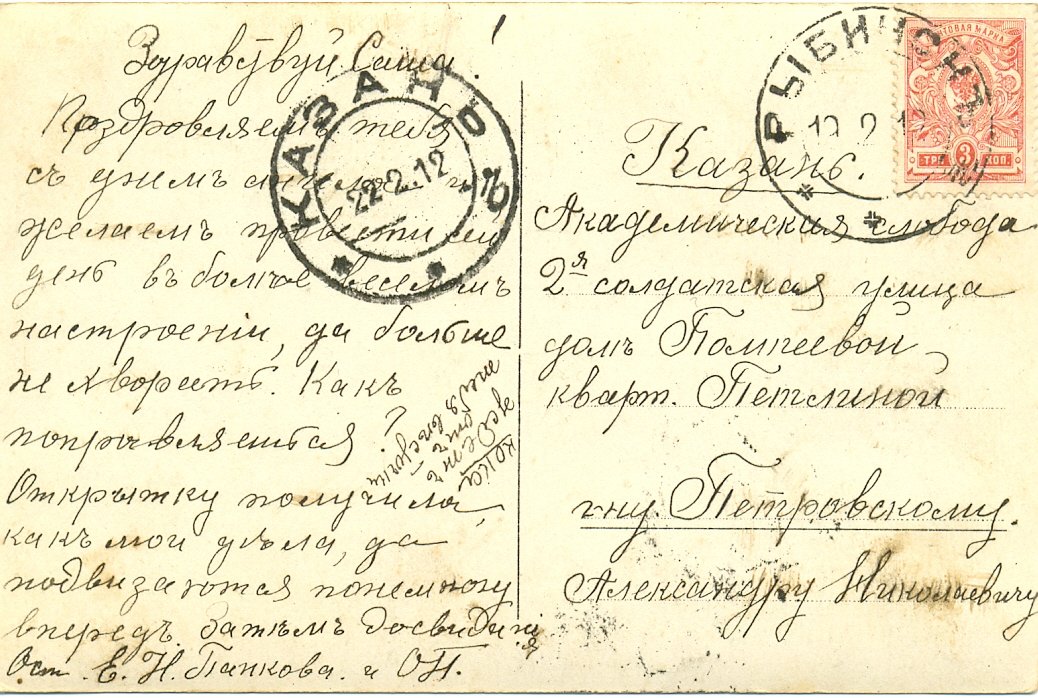 Здравствуй Саша!
Поздровляемъ тебя
съ днемъ ангела и
желаемъ провести сей
день въ более веселомъ
настроеніи, да больше
не хворать. Какъ
поправляешься?
Открытку получила,
какъ мои дѣла, да
подвизаются понемногу
впередъ. Затѣмъ досвиданія
Ост. Е. Н. Папкова. и О П.
КАЗАНЬ
22.2.12
РЫБИНСКЪ
19 2 1
ПОЧТОВАЯ МАРКА
ТРИ 3 КОП.
Казань.
Академическая слобода
2я солдатская улица
домъ Помпеевой
кварт. Петлиной
г-ну. Петровскому.
Александру Николаевичу